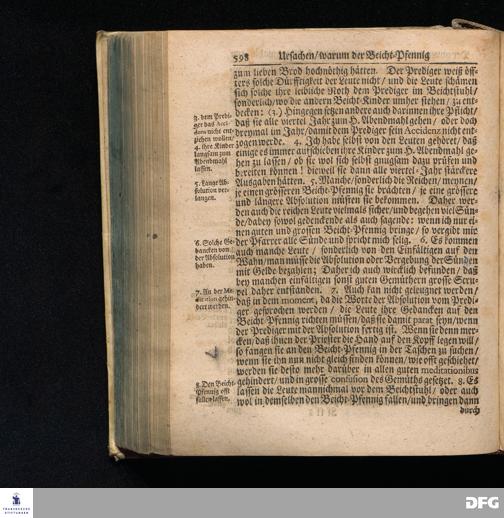 598 Ursachen/warum der Beicht-Pfennig
zum lieben Brod hochnöthig hätten. Der Prediger weiß öff-
ters solche Dürfftigkeit der Leute nicht/ und die Leute schämen
sich solche ihre leibliche Noth dem Prediger im Beichtstuhl/
sonderlich/wo die andern Beicht-Kinder umher stehen/ zu ent-
decken: (3.) Hingegen setzen andere auch darinnen ihre Pflicht/
daß sie alle viertel Jahr zum H. Abendmahl gehen/ oder doch
dreymal im Jahr/damit dem Prediger sein Accidenz nicht ent-
zogen werde. 4. Ich habe selbst von den Leuten gehöret/ daß
einige es immer aufschieben ihre Kinder zum H. Abendmahl ge-
hen zu lassen/ ob sie wol sich selbst gnugsam dazu prüfen und
bereiten können! dieweil sie dann alle viertel-Jahr stärckere
Ausgaben hätten. 5. Manche/sonderlich die Reichen/ meynen/
je einen grösseren Beicht-Pfennig sie brächten/ je eine grössere
und längere Absolution müsten sie bekommen. Daher wer-
den auch die reichen Leute vielmals sicher/und begehen viel Sün-
de/dabey sowol gedenckende als auch sagende: wenn ich nur ei-
nen guten und grossen Beicht-Pfennig bringe/ so vergibt mir
der Pfarrer alle Sünde und spricht mich selig. 6. Es kommen
auch manche Leute/ sonderlich von den Einfältigen auf den
Wahn/man müsse die Absolution oder Vergebung der Sünden
mit Gelde bezahlen; Daher ich auch würcklich befunden/ daß
bey manchen einfältigen sonst guten Gemüthern grosse Scru-
pel daher entstanden. 7. Auch kan nicht geleugnet werden/
daß in dem moment, da die Worte der Absolution vom Predi-
ger gesprochen werden/ die Leute ihre Gedancken auf den
Beicht-Pfennig richten müssen/daß sie damit parat seyn/wenn
der Prediger mit der Absolution fertig ist. Wenn sie denn mer-
cken/daß ihnen der Priester die Hand auf den Kopff legen will/
so fangen sie an den Beicht-Pfennig in der Taschen zu suchen/
wenn sie ihn nun nicht gleich finden können/ wie offt geschiehet/
werden sie desto mehr darüber in allen guten meditationibus
gehindert/ und in grosse confusion des Gemüths gesetzet. 8. Es
lassen die Leute mannichmal vor dem Beichtstuhl/ oder auch
wol in demselben den Beicht-Pfennig fallen/und bringen dann
durch
3. dem Predi-
ger das Acci-
denz nicht ent-
ziehen wollen/
4. ihre Kinder
langsam zum
Abendmahl
lassen.
5. lange Ab-
solution ver-
langen.
6. Solche Ge-
dancken von
der Absolution
haben.
7. An der Me-
ditation gehin-
dert werden.
8. Den Beicht-
Pfennig offt
fallen lassen.
FRANCKESCHE
STIFTUNGEN
DFG